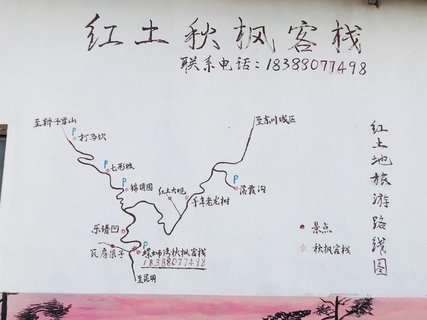 红土秋枫客栈
联系电话：18388077498
至轿子雪山
至东川城区
P
打马坎
P
七彩坡
P
锦绣园
红土大观
千年老龙树
P
落霞沟
乐谱凹
瓦房梁子
P
螺蛳湾秋枫客栈
18388077498
至昆明
景点
秋枫客栈
红土地旅游路线图